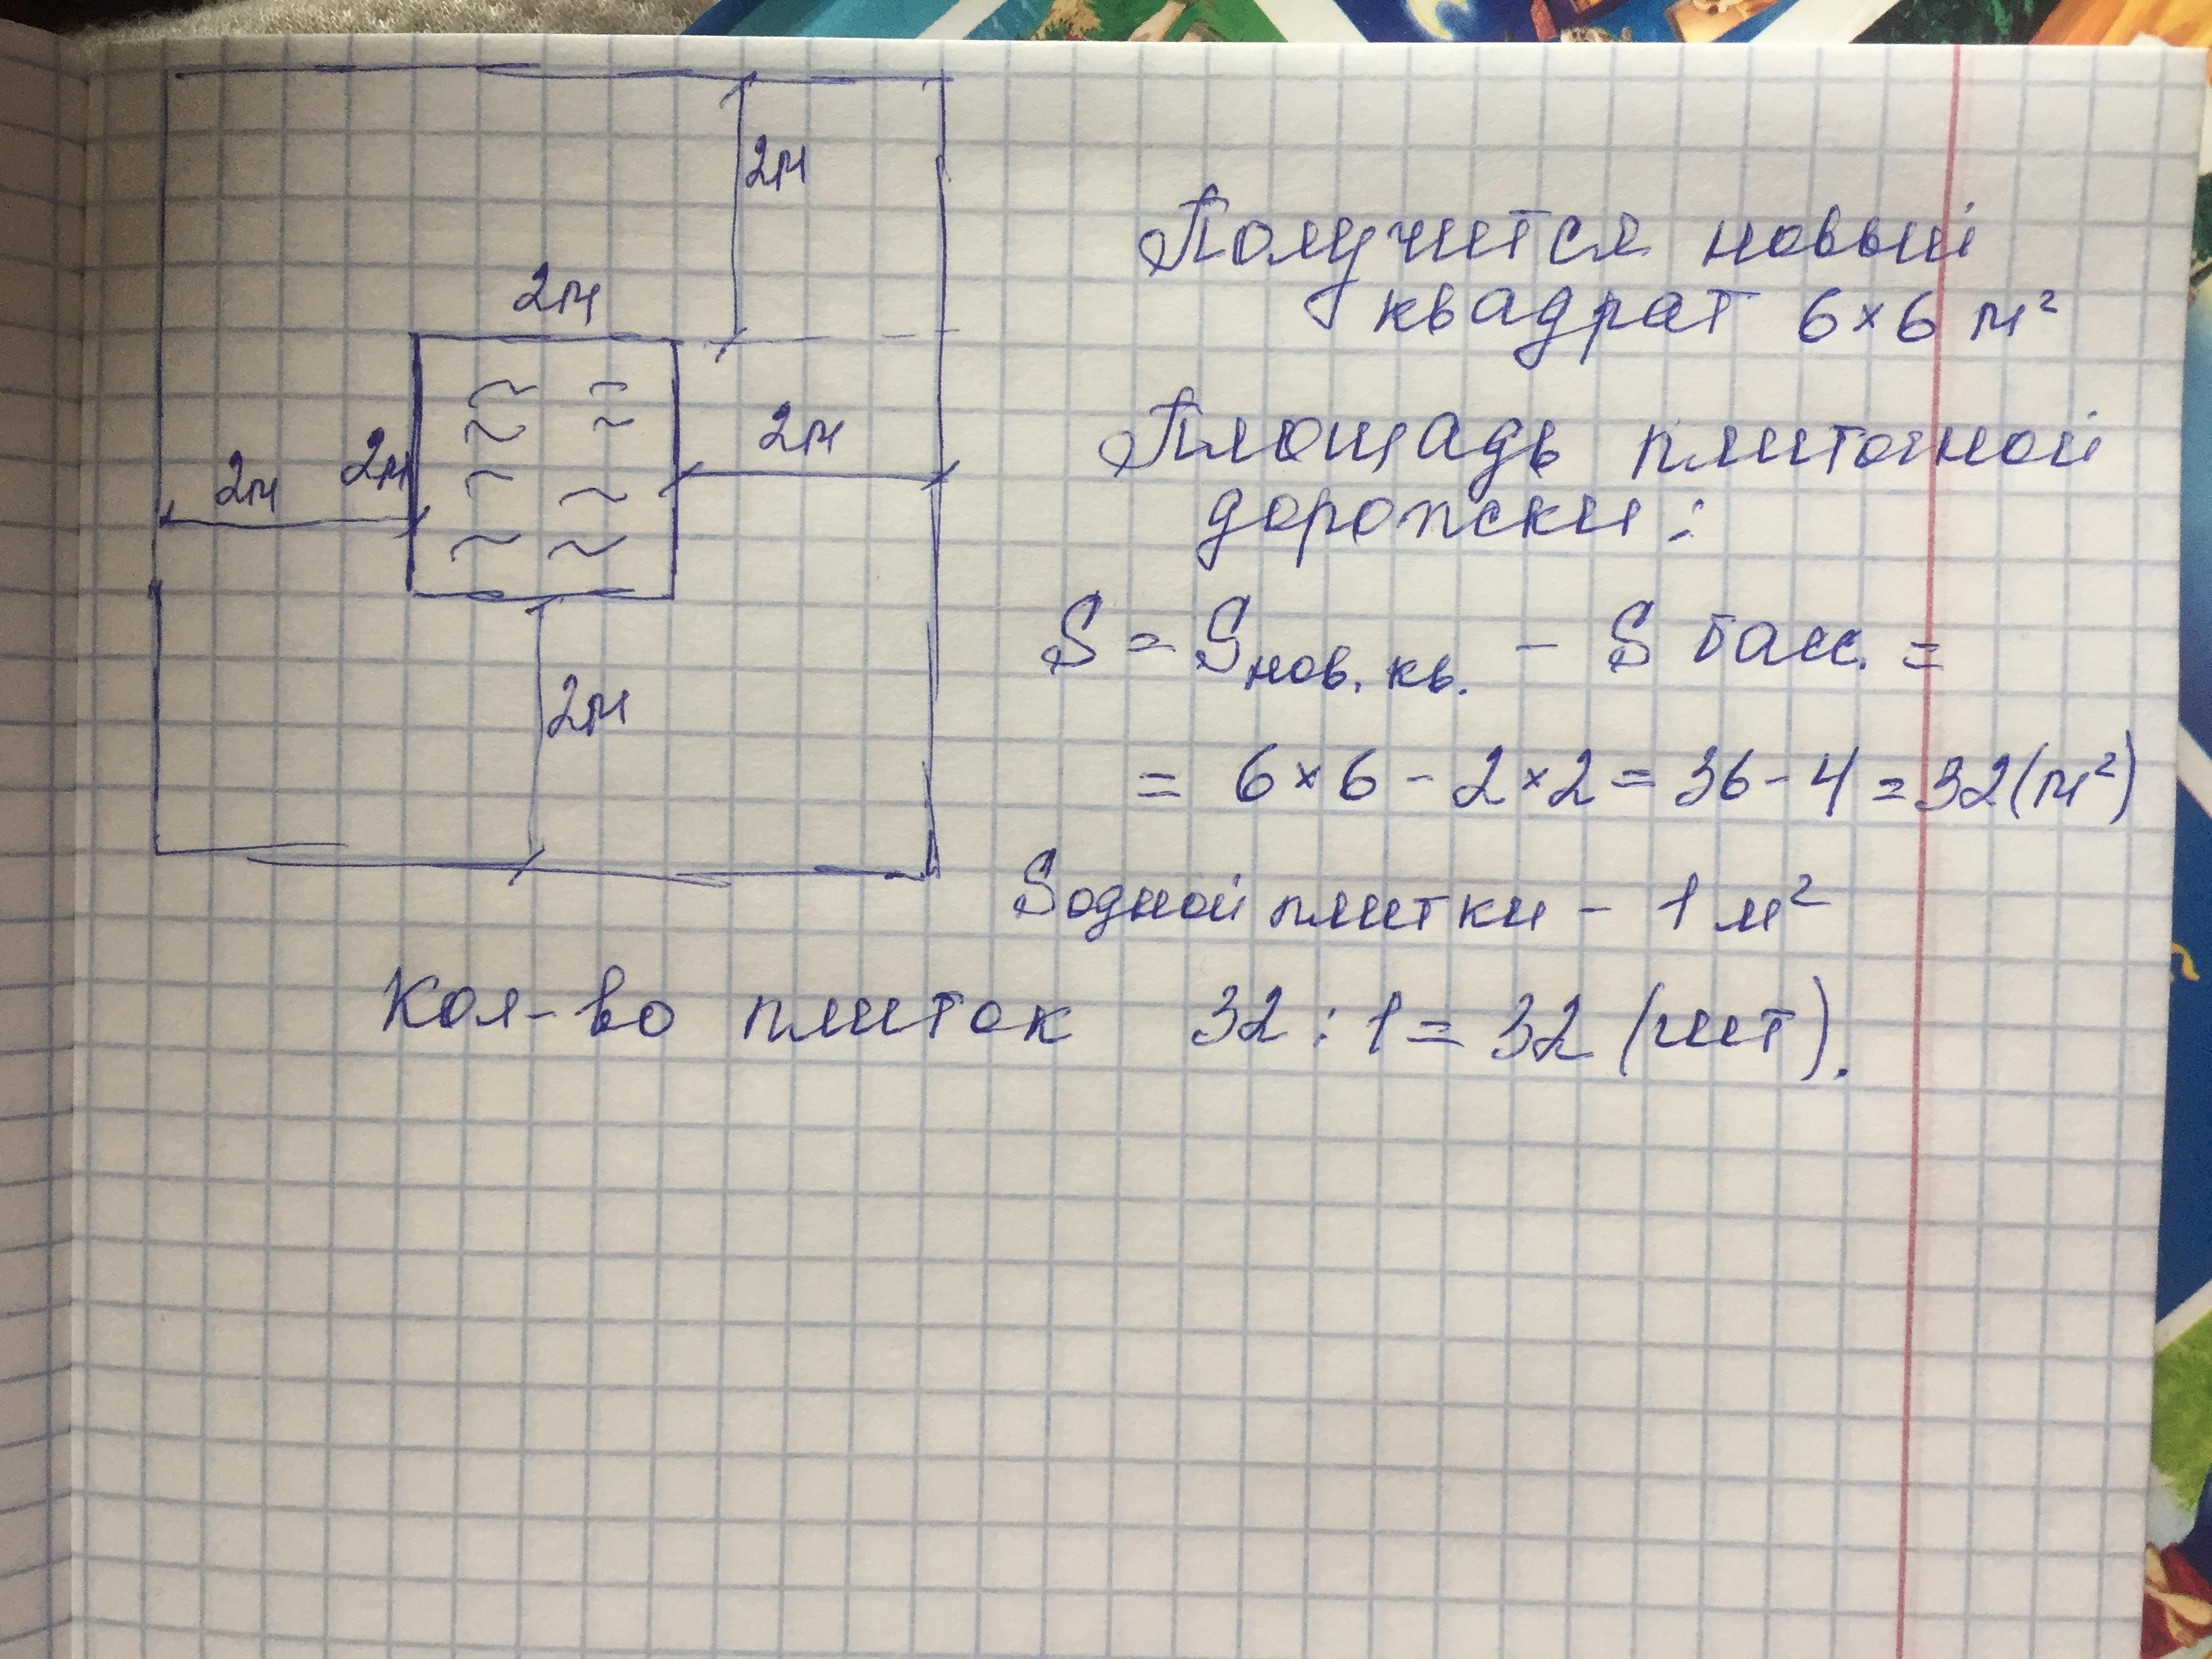 2м
2м
2м
2м
2м
2м
Получится новый
квадрат 6×6 м²
Площадь плиточной
дорожки:
S = Sнов. кв. - S басс. =
= 6×6 - 2×2 = 36 - 4 = 32 (м²)
Sодной плитки - 1 м²
Кол-во плиток 32 : 1 = 32 (шт).